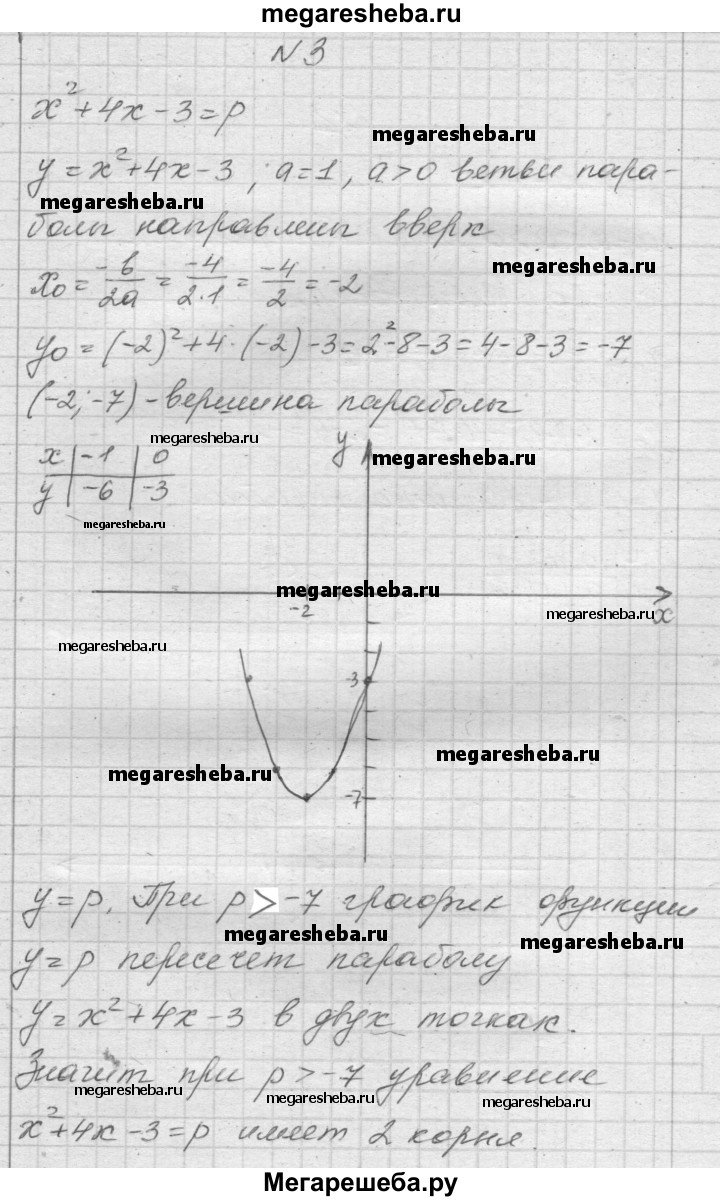 megaresheba.ru
N 3
x²+4x-3=p
megaresheba.ru
y=x²+4x-3 ; a=1, a>0 ветви пара-
megaresheba.ru
болы направлены вверх
megaresheba.ru
x₀ = -b/2a = -4/2·1 = -4/2 = -2
y₀ = (-2)²+4·(-2)-3=2²-8-3=4-8-3=-7
(-2;-7)-вершина параболы
megaresheba.ru
x | -1 | 0
y | -6 | -3
megaresheba.ru
y
megaresheba.ru
megaresheba.ru
-2
megaresheba.ru
x
megaresheba.ru
-3
megaresheba.ru
megaresheba.ru
-7
y=p. При p > -7 график функции
megaresheba.ru
megaresheba.ru
y=p пересечет параболу
y=x²+4x-3 в двух точках.
Значит при p>-7 уравнение
megaresheba.ru
megaresheba.ru
megaresheba.ru
x²+4x-3=p имеет 2 корня.
Мегарешеба.ру